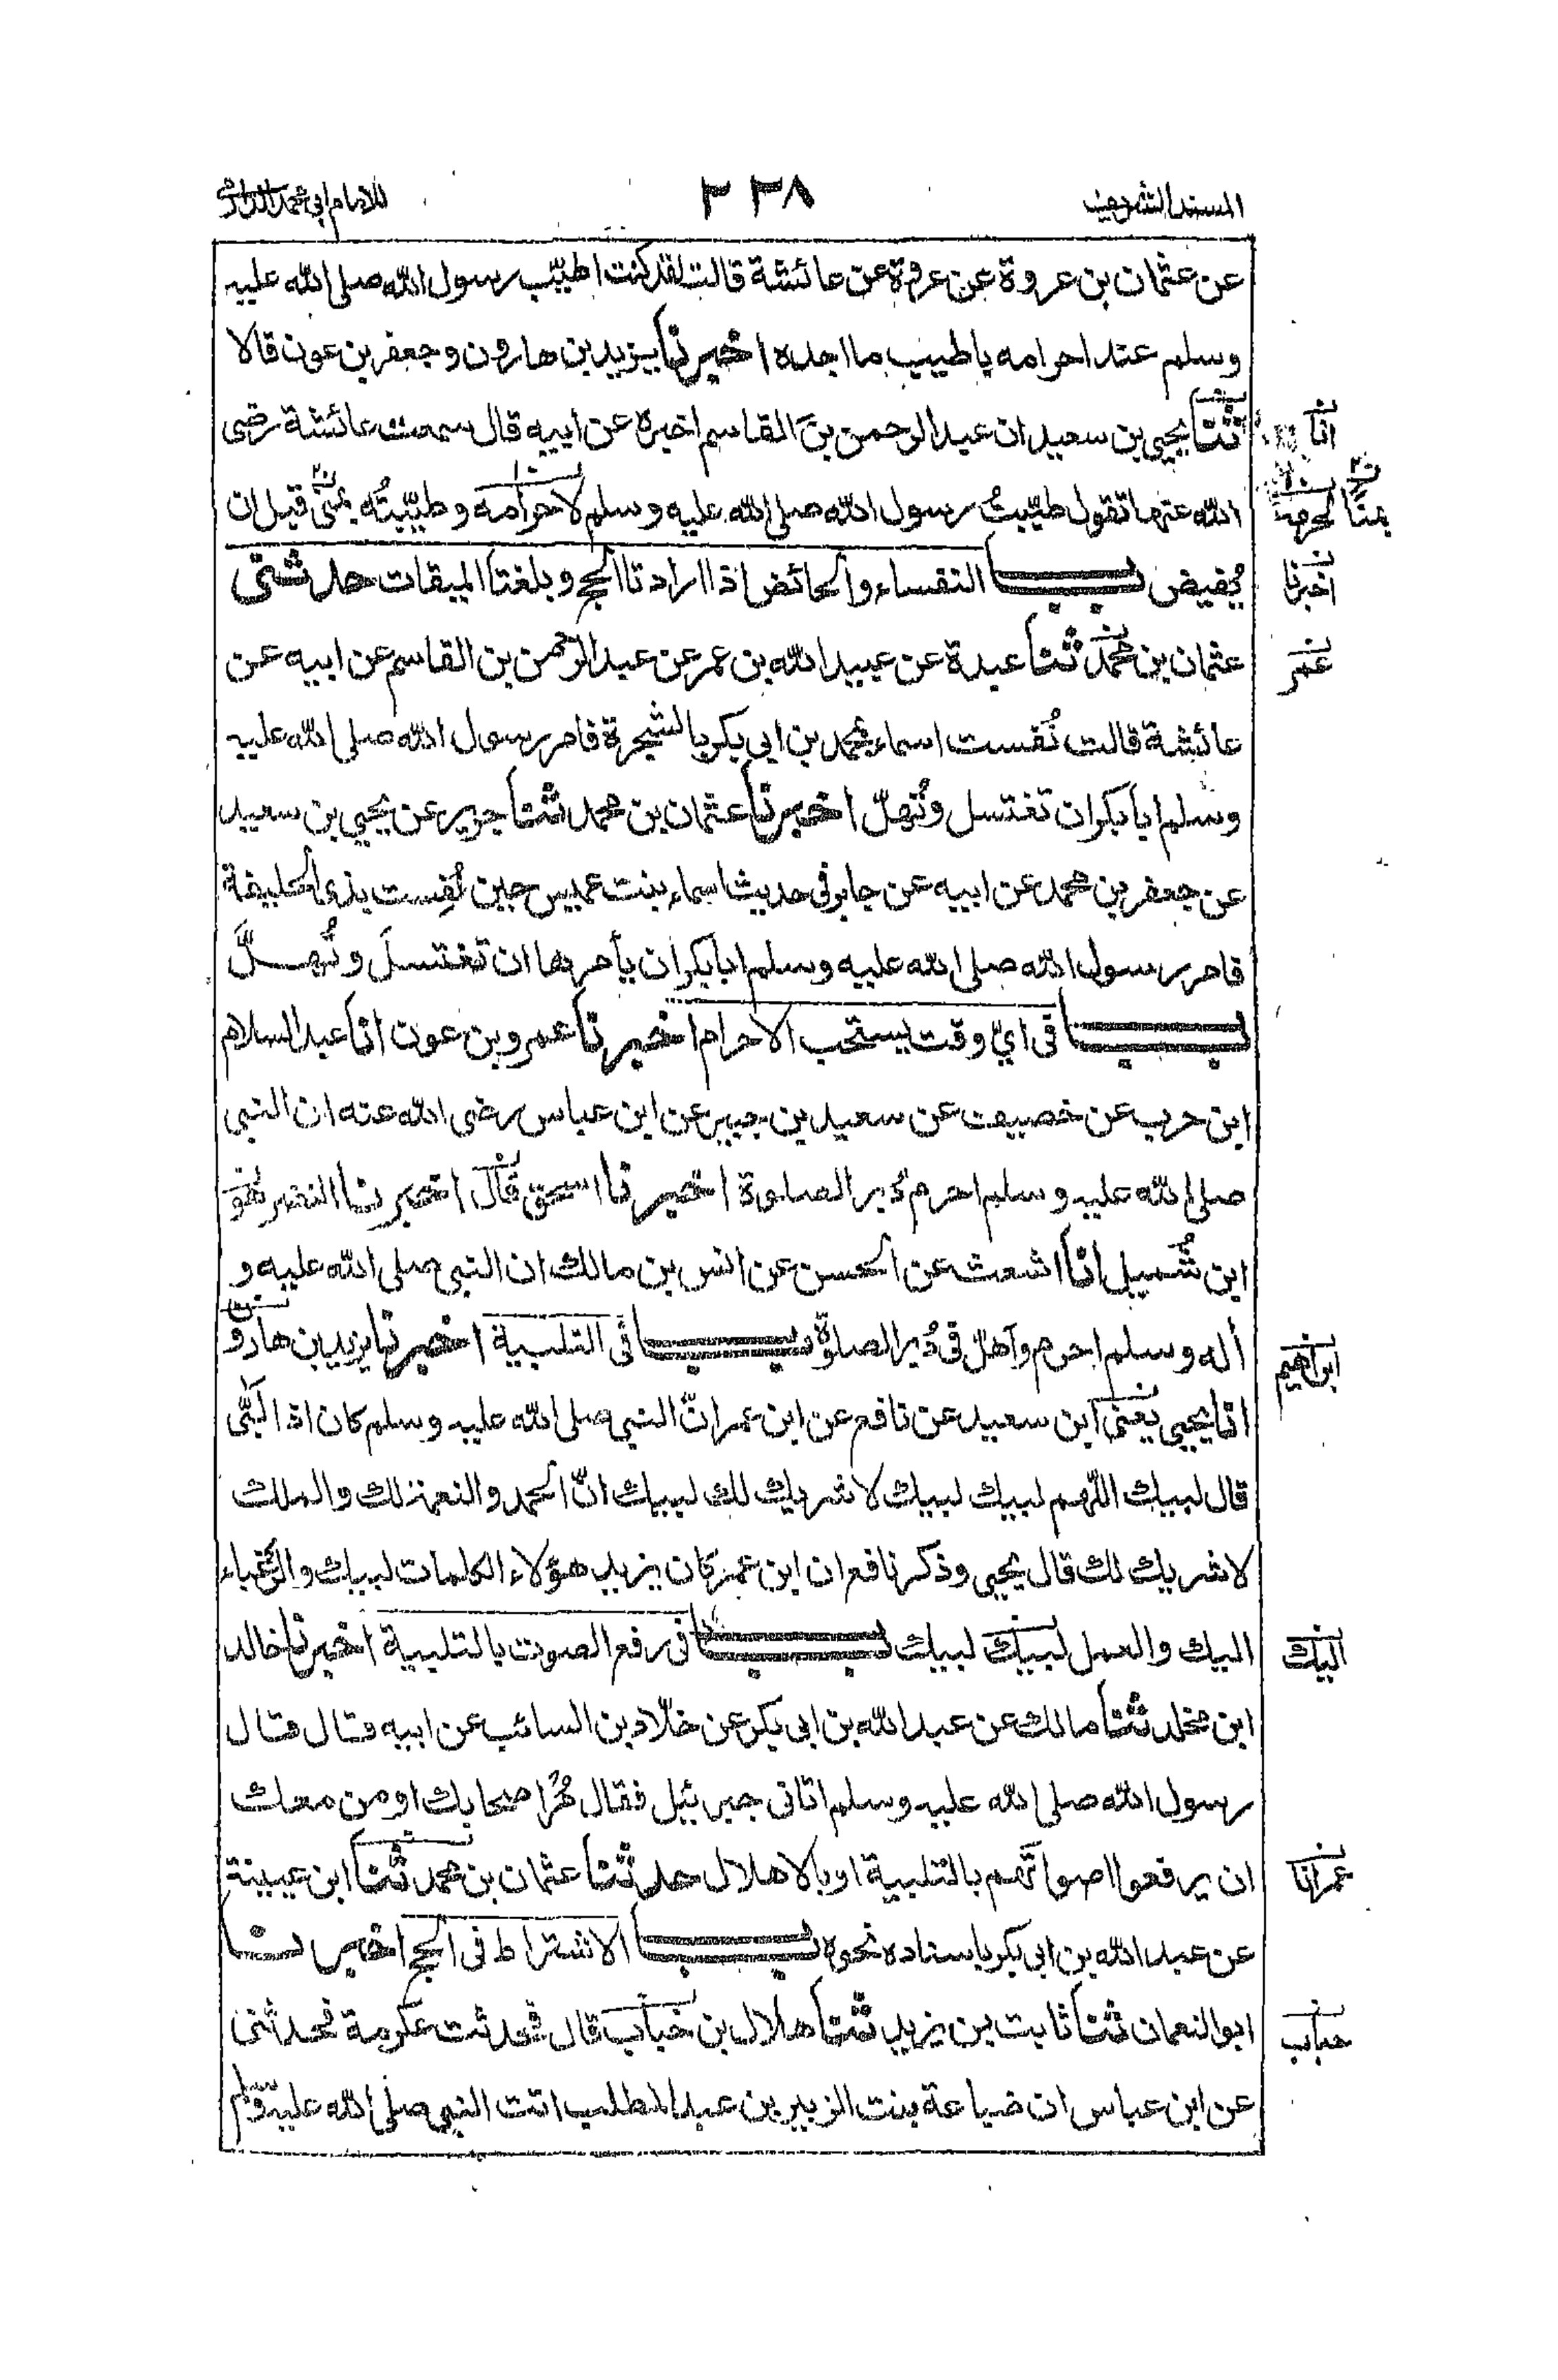 المسند الشريف ٢٣٨ للامام ابى محمد الدارمى
عن عثمان بن عروة عن عروة عن عائشة قالت لقد كنت اطيّب رسول الله صلى الله عليه
وسلم عند احرامه باطيب ما اجده اخبرنا يزيد بن هارون وجعفر بن عون قالا
ثنا يحيى بن سعيد ان عبد الرحمن بن القاسم اخبره عن ابيه قال سمعت عائشة رضى
انا
الله عنها تقول طيّبتُ رسول الله صلى الله عليه وسلم لاحرامه وطيّبتُه بمنًى قبل ان
بمنًا لحرمه
يُفيض باب النفساء والحائض اذا ارادتا الحج وبلغتا الميقات حدثنى
اخبرنا
عثمان بن محمد ثنا عبدة عن عبيد الله بن عمر عن عبد الرحمن بن القاسم عن ابيه عن
عمر
عائشة قالت نُفست اسماء بمحمد بن ابى بكر بالشجرة فامر رسول الله صلى الله عليه
وسلم ابا بكر ان تغتسل وتُهلّ اخبرنا عثمان بن محمد ثنا جرير عن يحيى بن سعيد
عن جعفر بن محمد عن ابيه عن جابر فى حديث اسماء بنت عميس حين نُفِست بذى الحليفة
فامر رسول الله صلى الله عليه وسلم ابا بكر ان يأمرها ان تغتسلَ وتُهلَّ
باب فى اىّ وقت يستحب الاحرام اخبرنا عمرو بن عون انا عبد السلام
ابن حرب عن خصيف عن سعيد بن جبير عن ابن عباس رضى الله عنه ان النبى
صلى الله عليه وسلم احرم دُبر الصلوة اخبرنا اسحق قال اخبرنا النضر هو
ابن شُميل انا اشعث عن الحسن عن انس بن مالك ان النبى صلى الله عليه و
أله وسلم احرم وآهلّ فى دُبر الصلوة باب فى التلبية اخبرنا يزيد بن هارون
ابراهيم
انا يحيى يعنى ابن سعيد عن نافع عن ابن عمر انّ النبى صلى الله عليه وسلم كان اذا لَبّٰى
قال لبيك اللّهم لبيك لبيك لا شريك لك لبيك انّ الحمد والنعمة لك والملك
لا شريك لك قال يحيى وذكر نافع ان ابن عمر كان يزيد هؤلاء الكلمات لبيك والرغباء
اليك والعمل لبيك لبيك باب فى رفع الصوت بالتلبية اخبرنا خالد
اليك
ابن مخلد ثنا مالك عن عبد الله بن ابى بكر عن خلّاد بن السائب عن ابيه قال قال
رسول الله صلى الله عليه وسلم اتانى جبرئيل فقال مُر اصحابك او من معك
ان يرفعوا اصواتَهم بالتلبية او بالاهلال حدثنا عثمان بن محمد ثنا ابن عيينة
عمر انا
عن عبد الله بن ابى بكر باسناده نحوه باب الاشتراط فى الحج اخبرنا
ابو النعمان ثنا ثابت بن يزيد ثنا هلال بن خباب قال فحدثت عكرمة فحدثنى
حباب
عن ابن عباس ان ضباعة بنت الزبير بن عبد المطلب اتت النبى صلى الله عليه وسلم